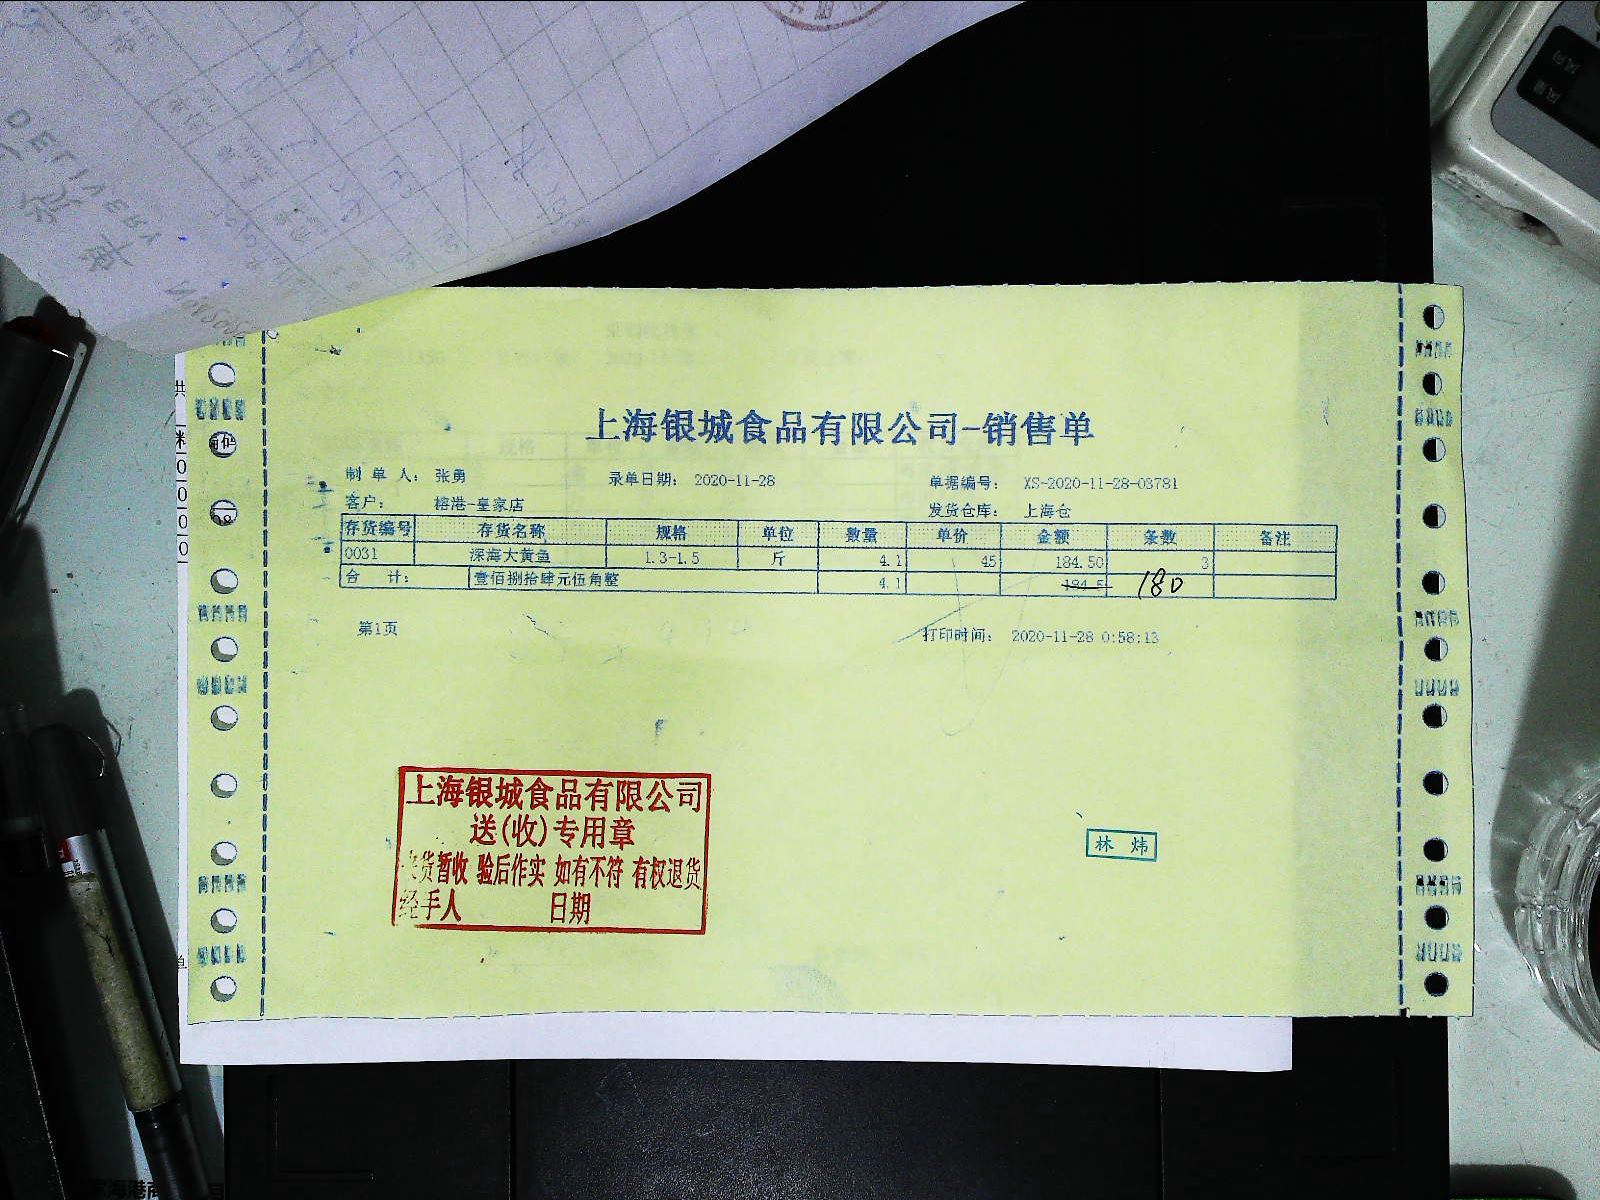 DELIVERY
上海银城食品有限公司-销售单
制单人: 张勇 录单日期: 2020-11-28 单据编号: XS-2020-11-28-03781
客户: 榕港-皇家店 发货仓库: 上海仓
存货编号 存货名称 规格 单位 数量 单价 金额 条数 备注
0031 深海大黄鱼 1.3-1.5 斤 4.1 45 184.50 3
合计: 壹佰捌拾肆元伍角整 4.1 184.5 180
第1页 打印时间: 2020-11-28 0:58:13
上海银城食品有限公司
送(收)专用章
货暂收 验后作实 如有不符 有权退货
经手人 日期
林炜